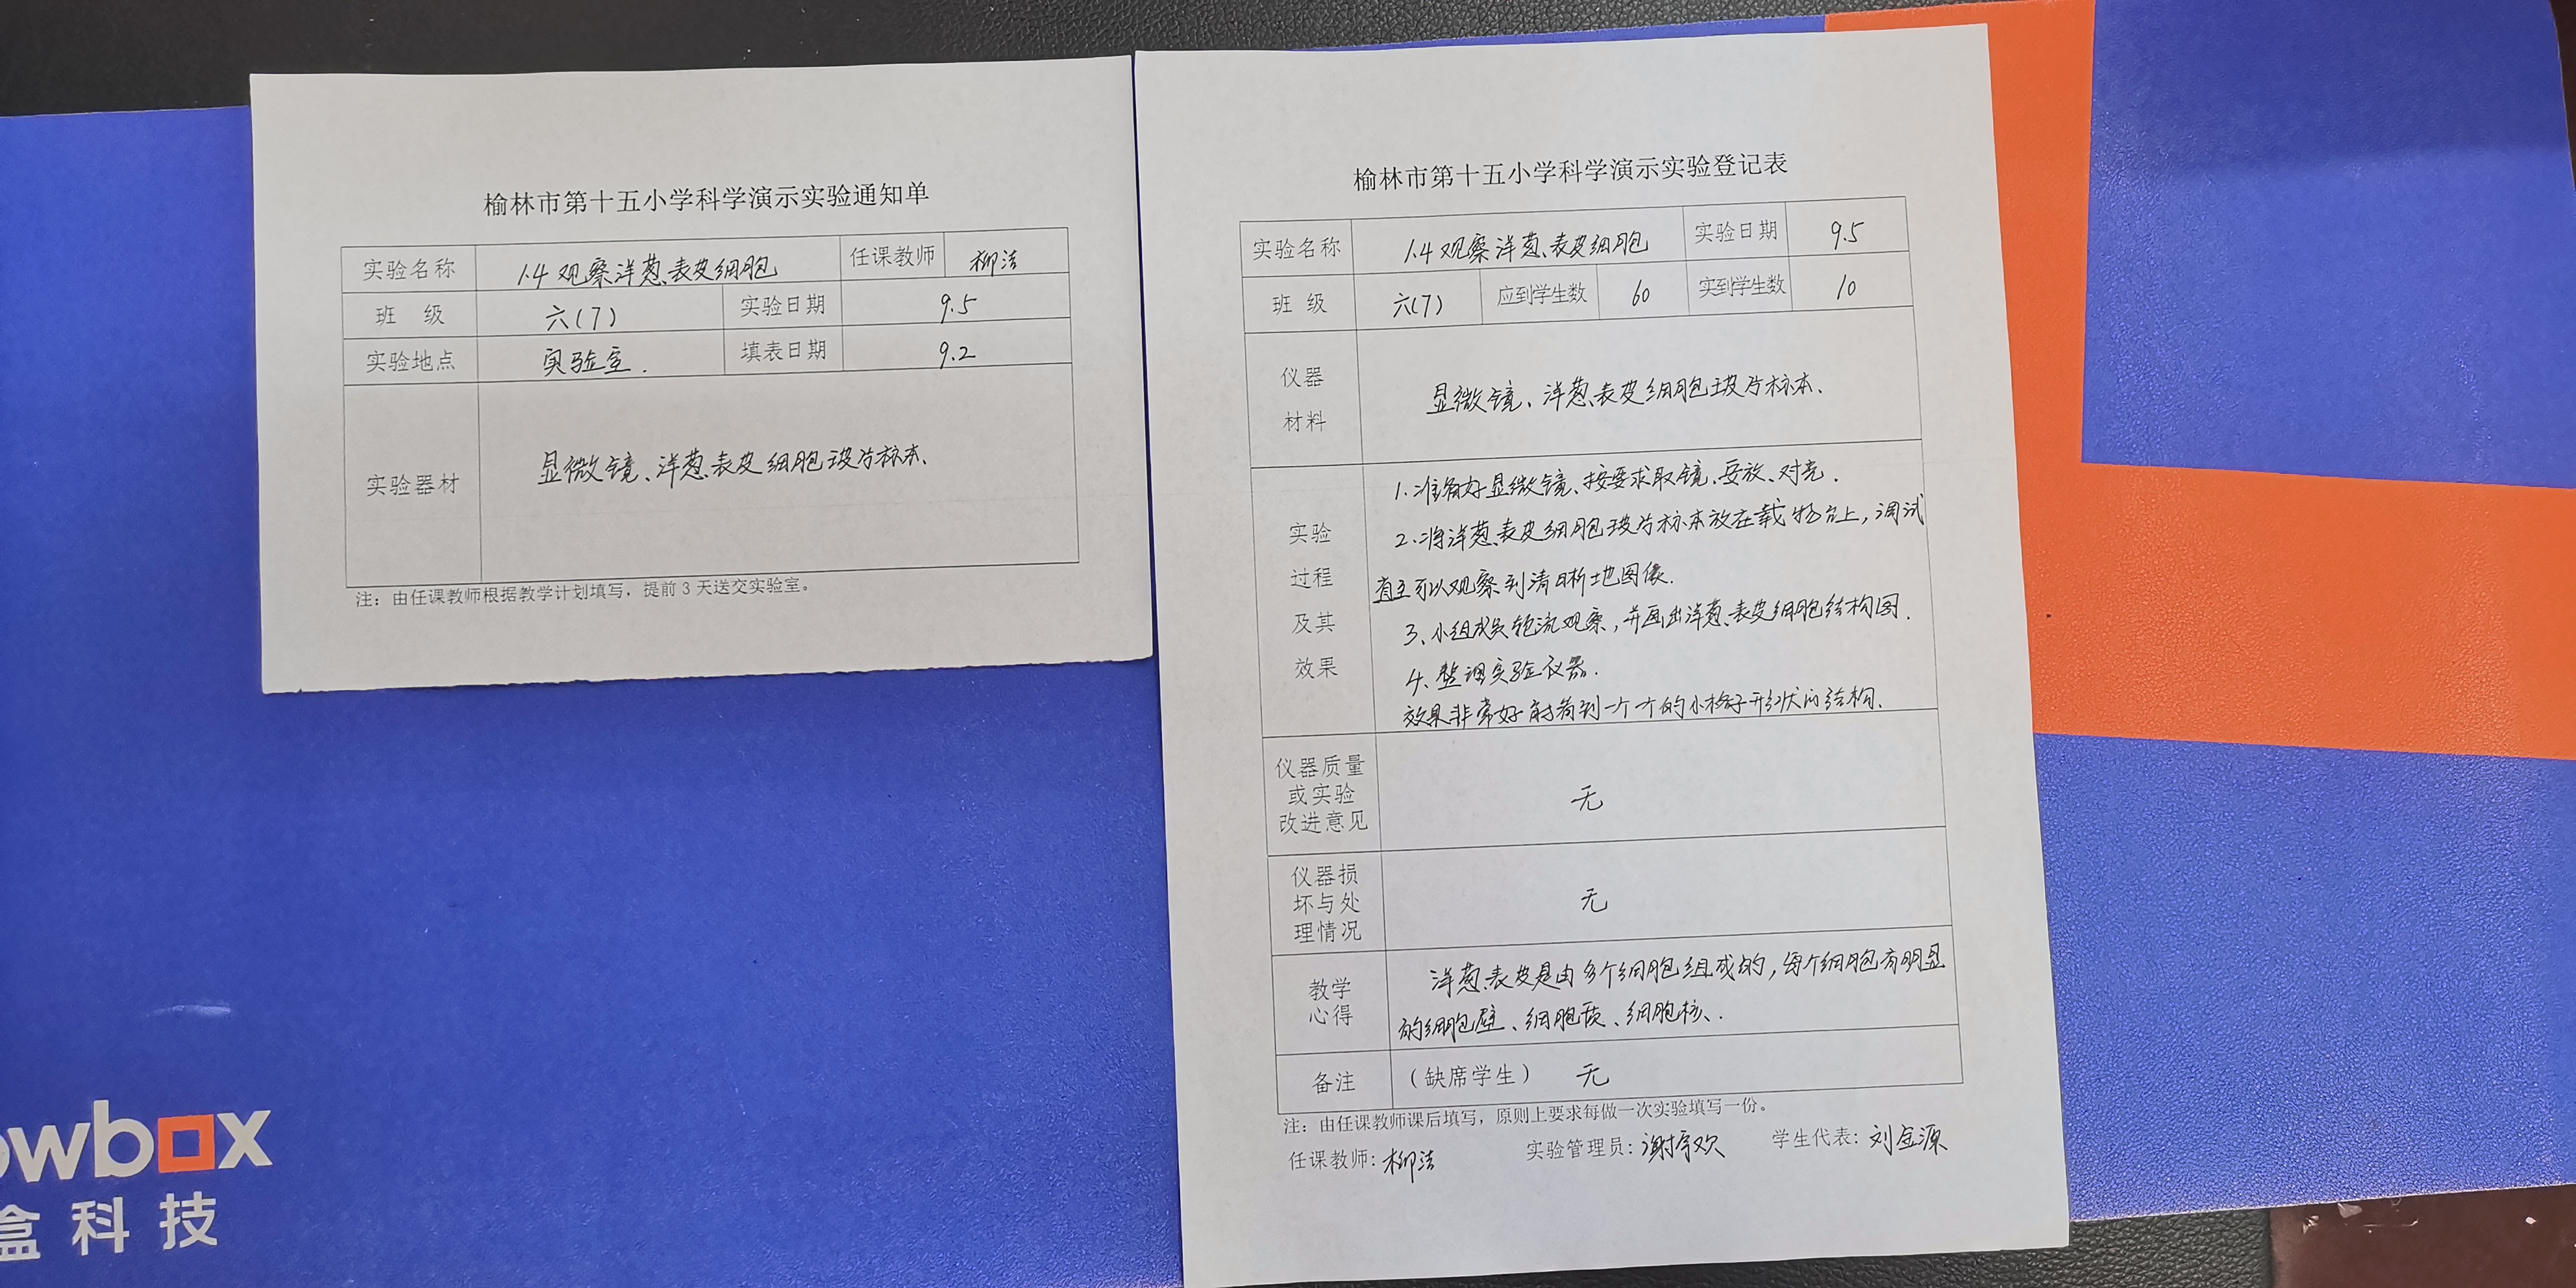 榆林市第十五小学科学演示实验通知单
实验名称 1.4 观察洋葱表皮细胞 任课教师 柳洁
班 级 六(7) 实验日期 9.5
实验地点 实验室. 填表日期 9.2
实验器材 显微镜、洋葱表皮细胞玻片标本、
注：由任课教师根据教学计划填写，提前3天送交实验室。
榆林市第十五小学科学演示实验登记表
实验名称 1.4 观察洋葱表皮细胞 实验日期 9.5
班 级 六(7) 应到学生数 60 实到学生数 10
仪器
材料
显微镜、洋葱表皮细胞玻片标本、
实验
过程
及其
效果
1.准备好显微镜、按要求取镜、安放、对光.
2.将洋葱表皮细胞玻片标本放在载物台上，调试
直至可以观察到清晰地图像.
3、小组成员轮流观察，并画出洋葱表皮细胞结构图.
4、整理实验仪器.
效果非常好 能看到一个个的小格子形状的结构.
仪器质量
或实验
改进意见
无
仪器损
坏与处
理情况
无
教学
心得
洋葱表皮是由多个细胞组成的，每个细胞有明显
的细胞壁、细胞质、细胞核、.
备注 （缺席学生） 无
注：由任课教师课后填写，原则上要求每做一次实验填写一份。
任课教师: 柳洁 实验管理员: 谢宇欢 学生代表: 刘金源
owbox
盒科技